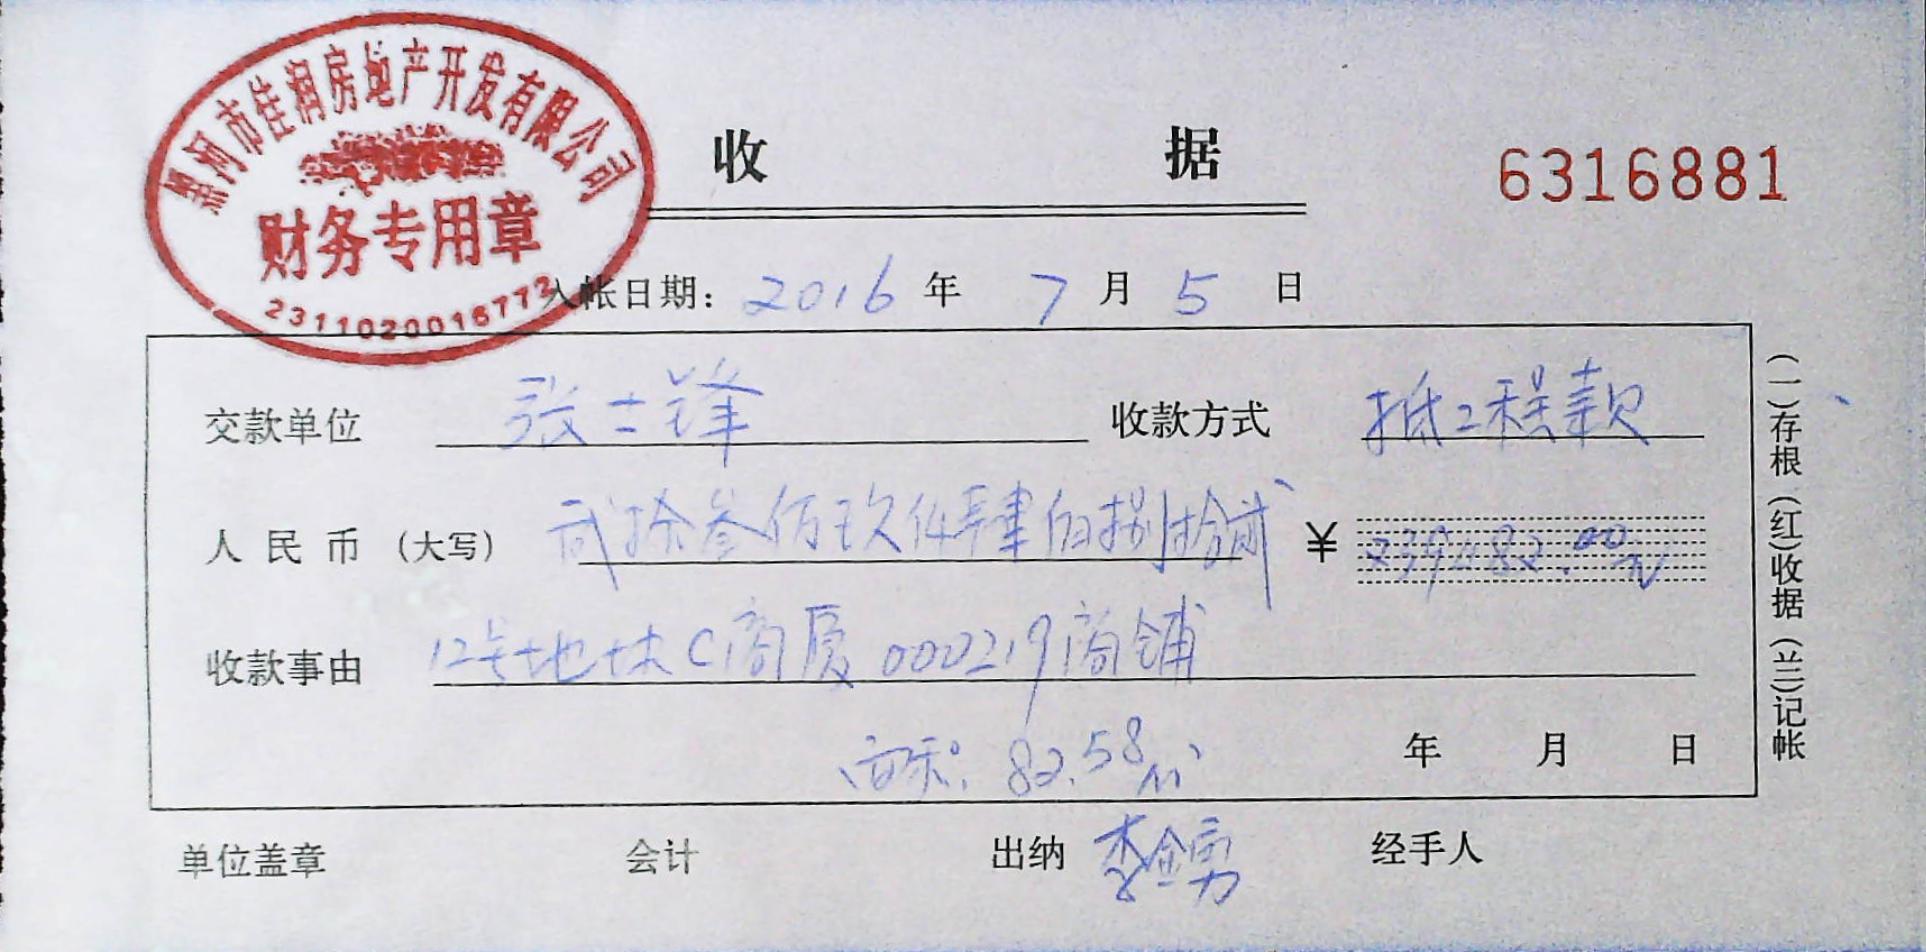 黑河市佳润房地产开发有限公司
财务专用章
2311020016772
收 据
6316881
入帐日期： 2016 年 7 月 5 日
交款单位 张士锋 收款方式 抵工程款
人民币（大写） 贰拾叁 玖仟肆佰捌拾贰 ￥ 239482.00元
收款事由 12号地块C商厦000219商铺
面积：82.58㎡
年 月 日
单位盖章 会计 出纳 李金勇 经手人
（一）存根（红）收据（兰）记帐